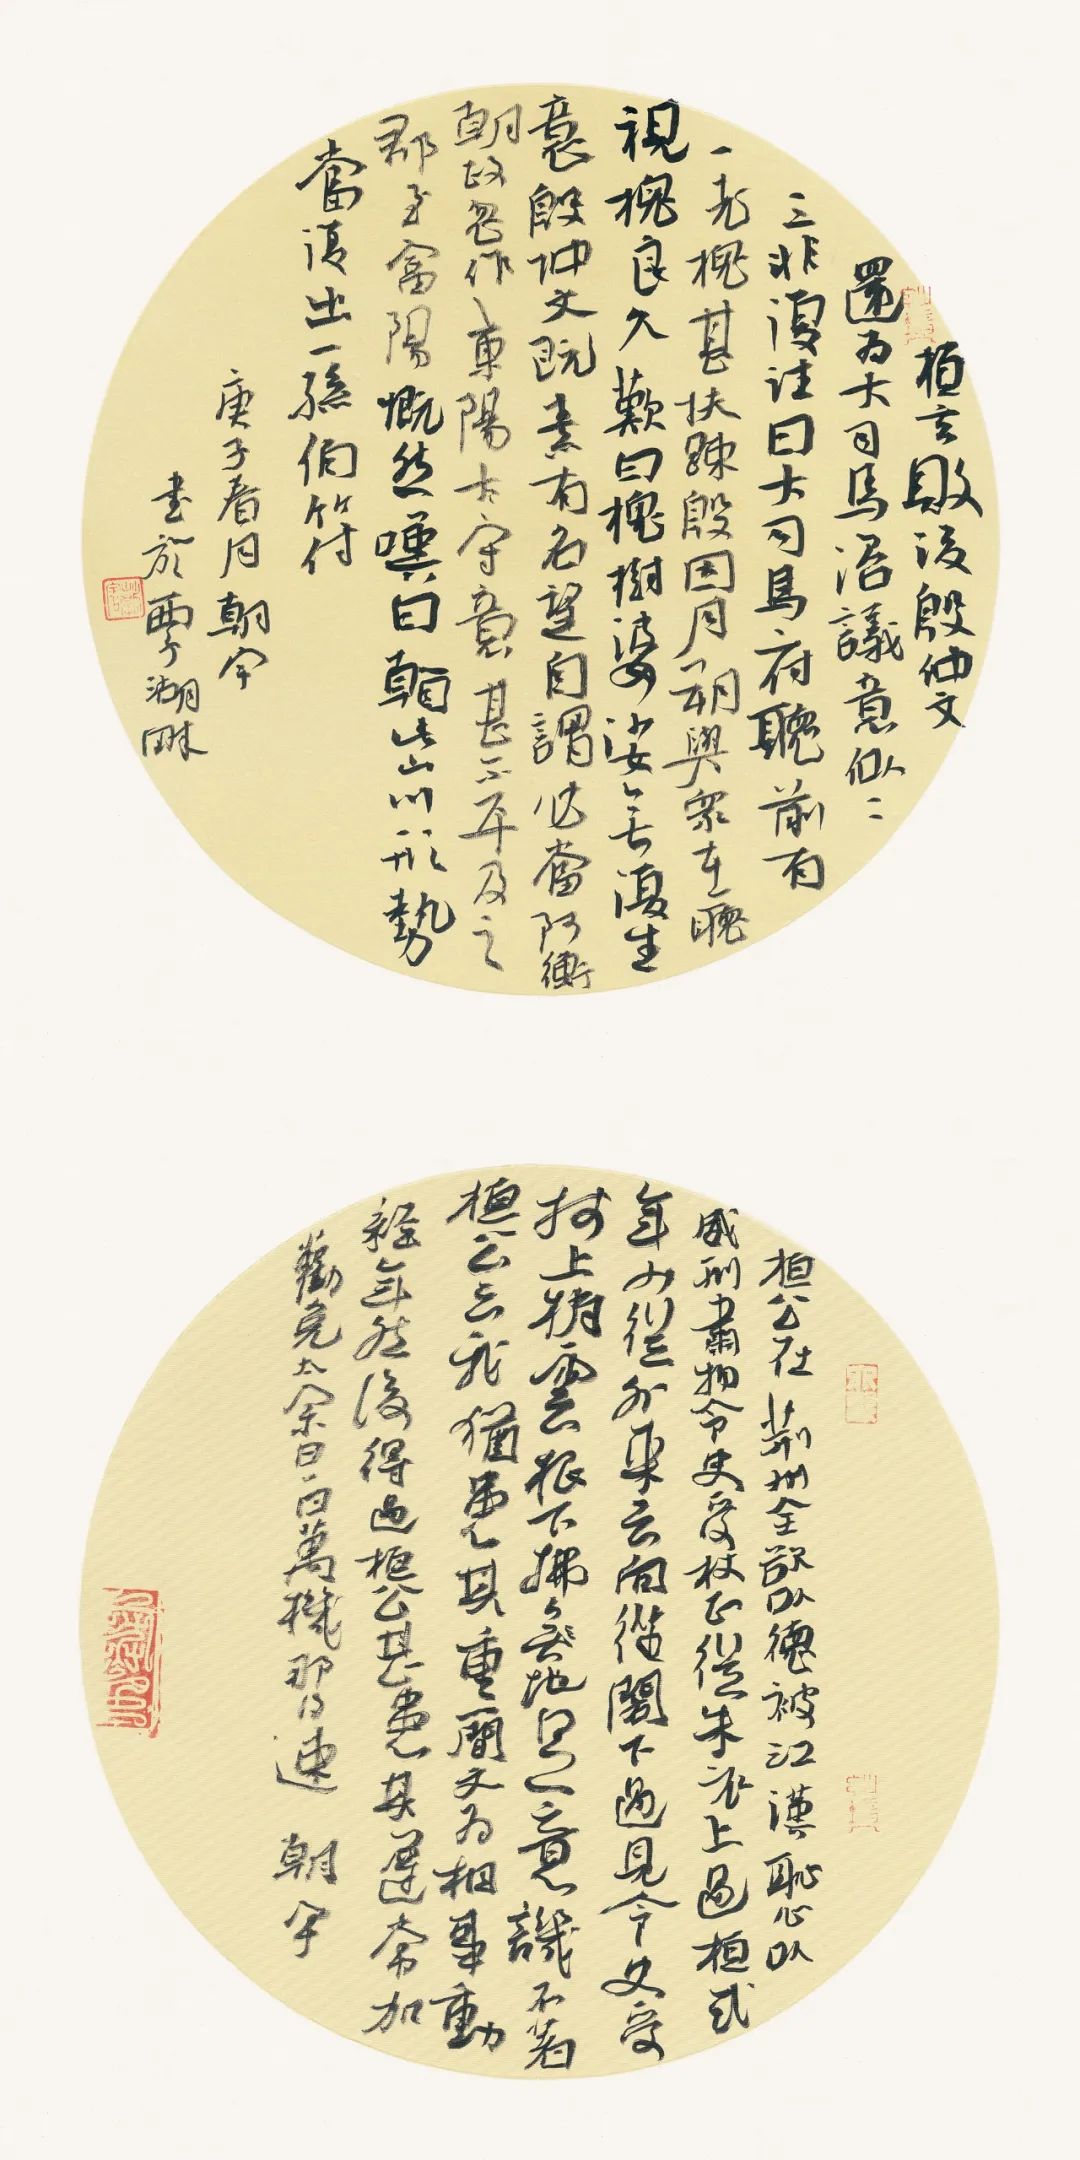 桓玄敗後殷仲文
還為大司馬諮議意似二
三非復往日大司馬府聽前有
一老槐甚扶疎殷因月朔與眾在聽
視槐良久歎曰槐樹婆娑無復生
意殷仲文既素有名望自謂必當阿衡
朝政忽作東陽太守意甚不平及之
郡至富陽慨然嘆曰此山川形勢
當復出一孫伯符
庚子春月朝宇
書於西子湖畔
桓公在荊州全欲以德被江漢恥以
威刑肅物令史受杖正從朱衣上過桓式
年少從外來云向從閣下過見令史受
杖上捎雲根下拂地足意譏不著
桓公云我猶患其重簡文為相事動
經年然後得過桓公甚患其遲常加
勸免太宗曰一日萬機那得速 朝宇